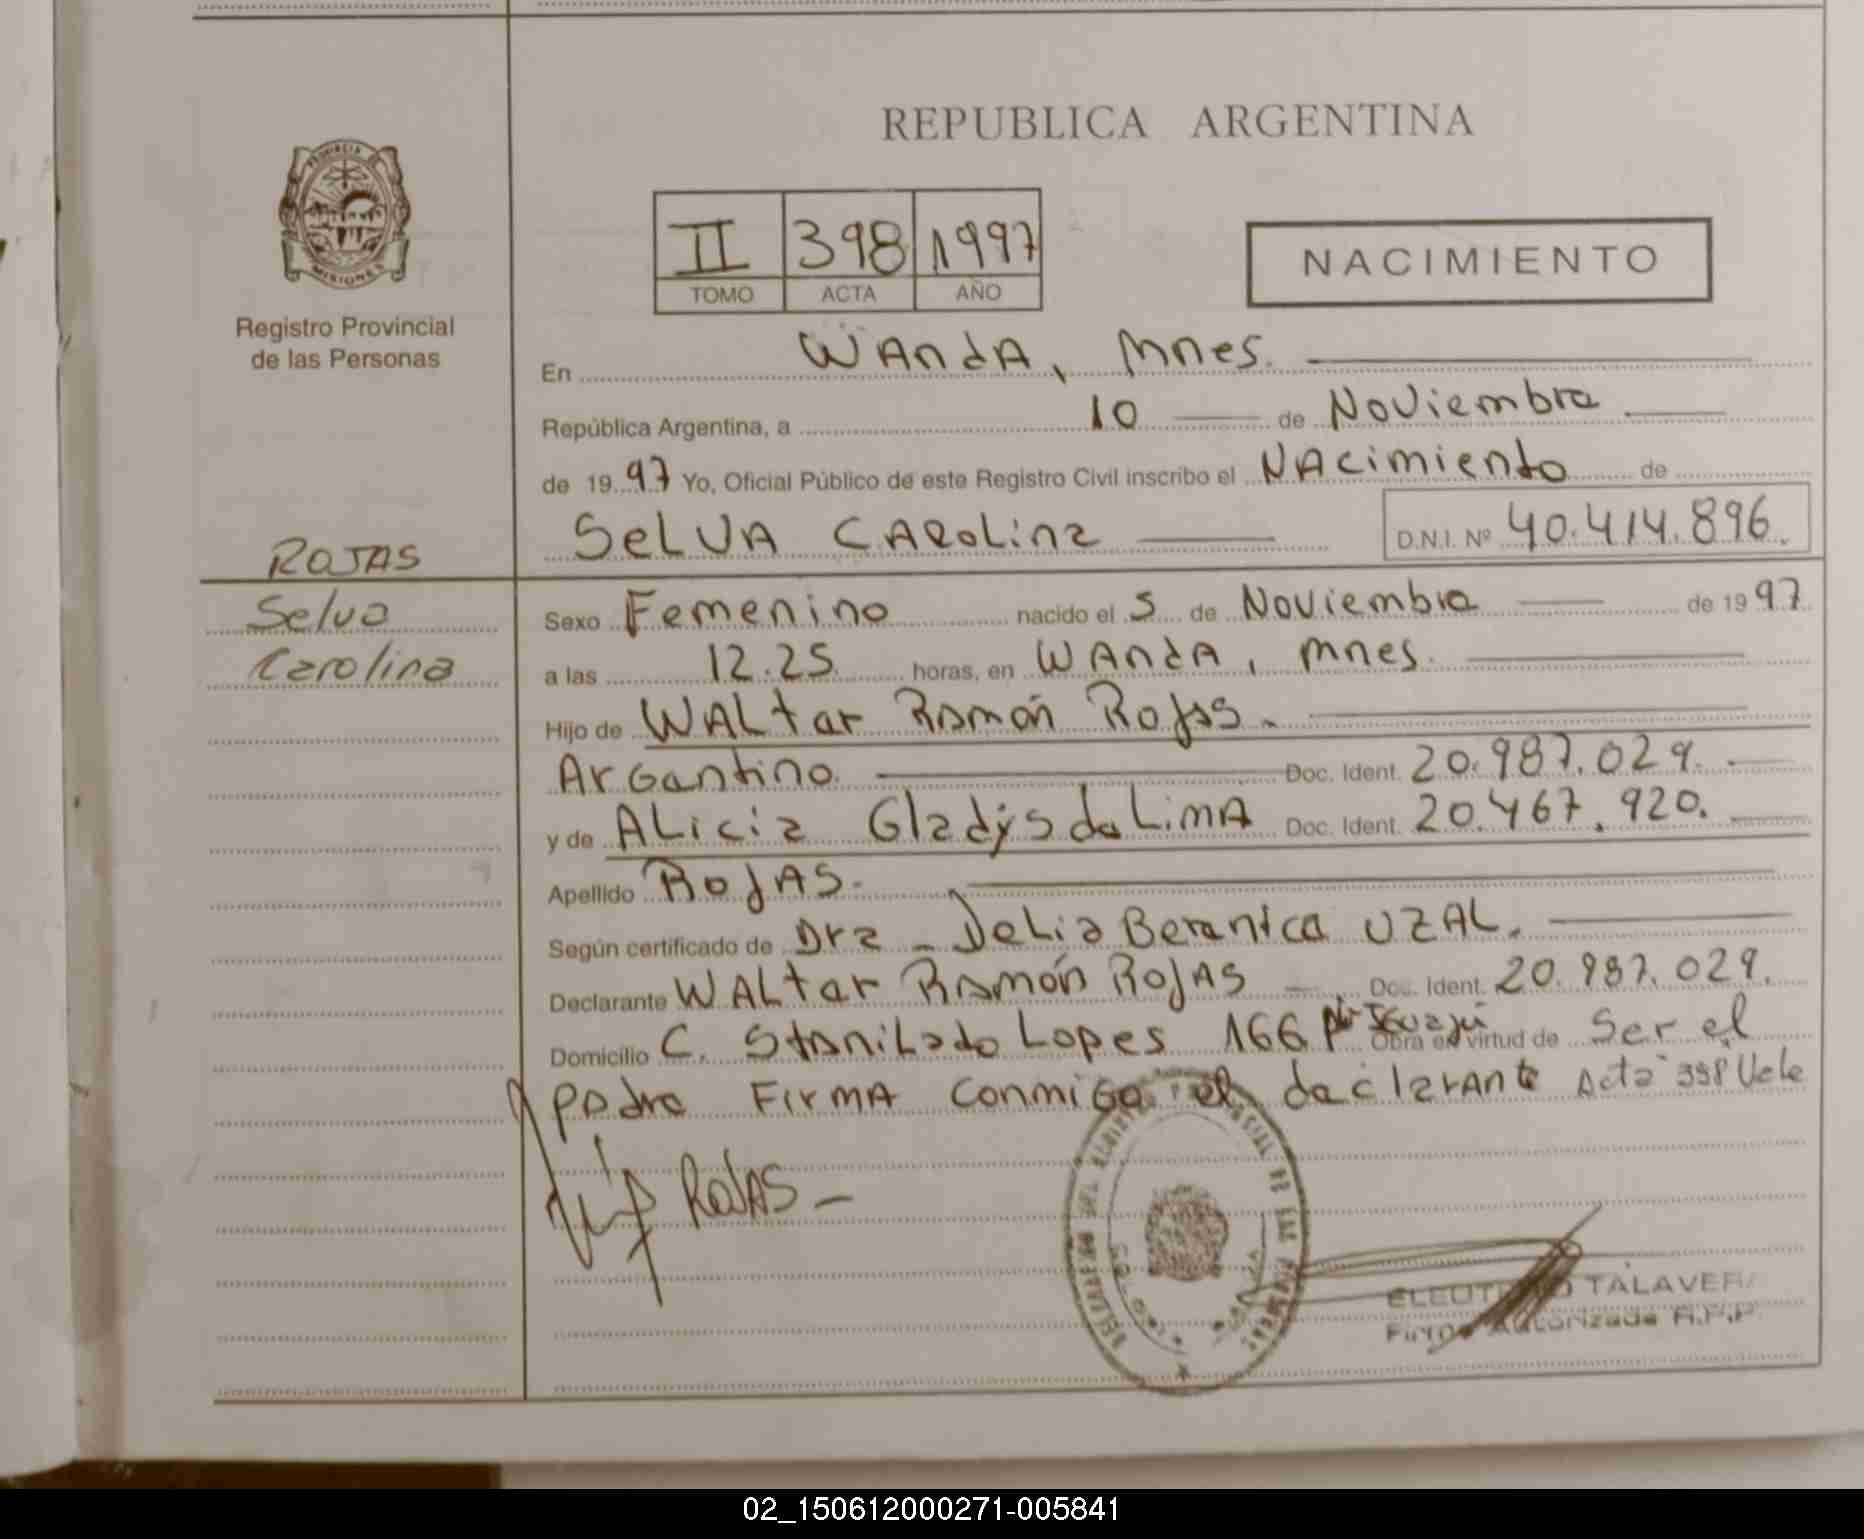 REPUBLICA ARGENTINA
PROVINCIA DE
MISIONES
Registro Provincial
de las Personas
II 398 1997
TOMO ACTA AÑO
NACIMIENTO
En WANdA, Mnes.
República Argentina, a 10 de Noviembre
de 1997 Yo, Oficial Público de este Registro Civil inscribo el NAcimiento de
SeLVA CARoLina D.N.I. Nº 40.414.896.
ROJAS
Selva
Carolina
Sexo Femenino nacido el 5 de Noviembre de 1997
a las 12.25 horas, en WANdA, mnes.
Hijo de WALter Ramón Rojas.
Argentino. Doc. Ident. 20.987.029.
y de ALicia Gladys de LimA Doc. Ident. 20.467.920.
Apellido RojAS.
Según certificado de Dra. Delia Berenica UZAL.
Declarante WALter Ramón RojAS Doc. Ident. 20.987.029.
Domicilio C. Stanilado Lopes 166 Pto Iguazú Obra en virtud de Ser el
padre FirmA conmigo el declarante Acta 398 Vale
RojAS
TALAVERA
Firma Autorizada R.P.P.
02_150612000271-005841